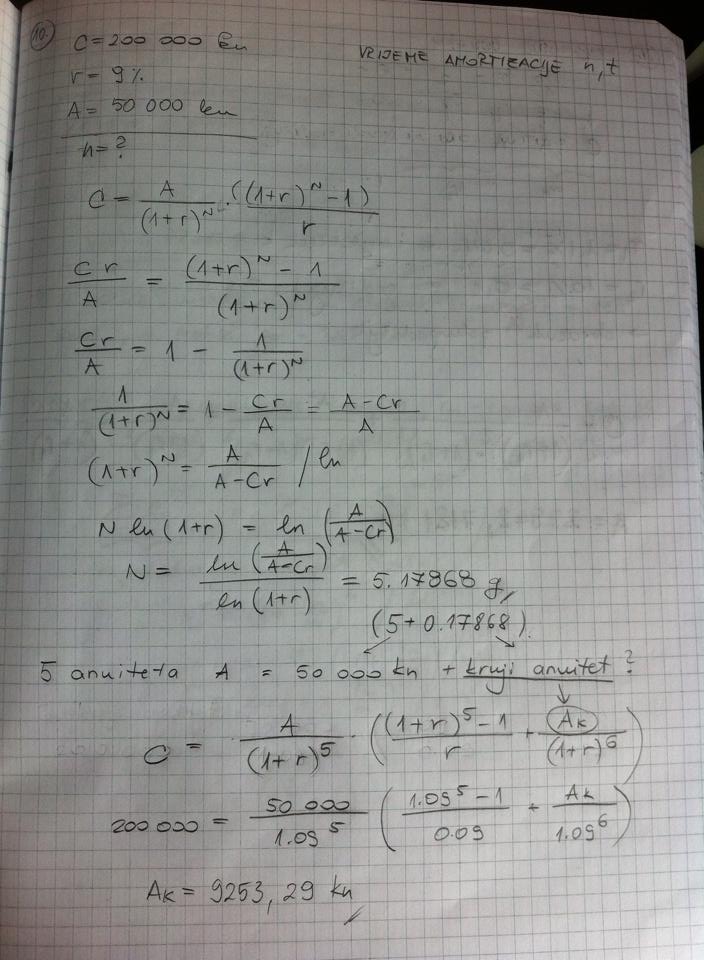 10. C = 200 000 kn
VRIJEME AMORTIZACIJE n,t
r = 9%
A = 50 000 kn
n = ?
C = A/(1+r)^N · ((1+r)^N - 1)/r
Cr/A = ((1+r)^N - 1)/(1+r)^N
Cr/A = 1 - 1/(1+r)^N
1/(1+r)^N = 1 - Cr/A = (A-Cr)/A
(1+r)^N = A/(A-Cr) / ln
N ln(1+r) = ln (A/(A-Cr))
N = ln (A/(A-Cr))/ln(1+r) = 5.17868 g
(5+0.17868)
5 anuiteta A = 50 000 kn + krnji anuitet ?
C = A/(1+r)^5 · (((1+r)^5 - 1)/r + Ak/(1+r)^6)
200 000 = 50 000/1.09^5 (1.09^5 - 1/0.09 + Ak/1.09^6)
Ak = 9253,29 kn